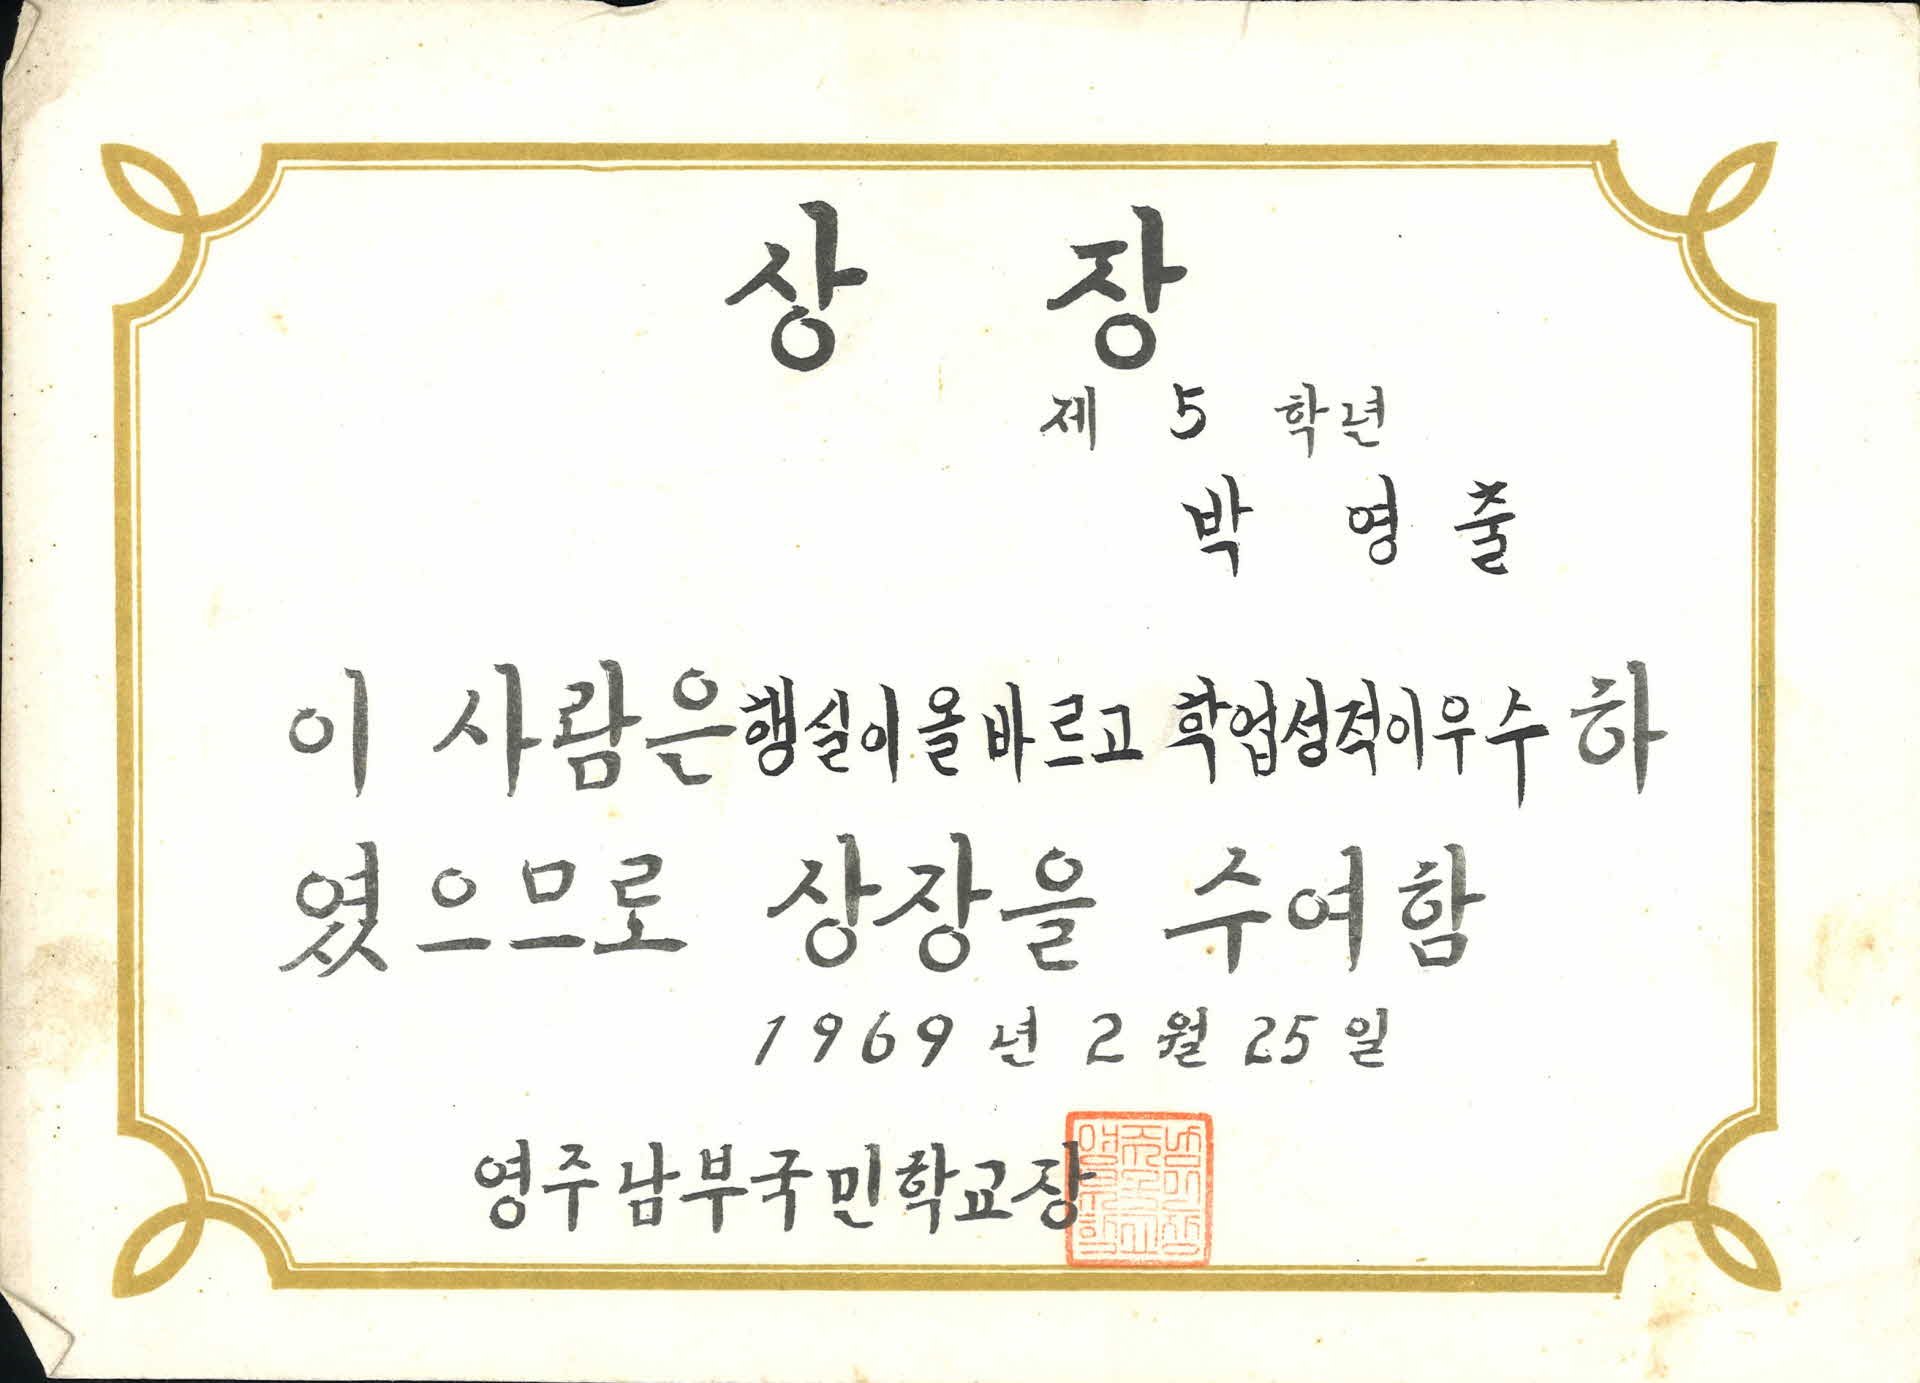 상 장
제 5 학년
박 영 출
이 사람은 행실이 올바르고 학업성적이 우수하
였으므로 상장을 수여함
1969년 2월 25일
영주남부국민학교장